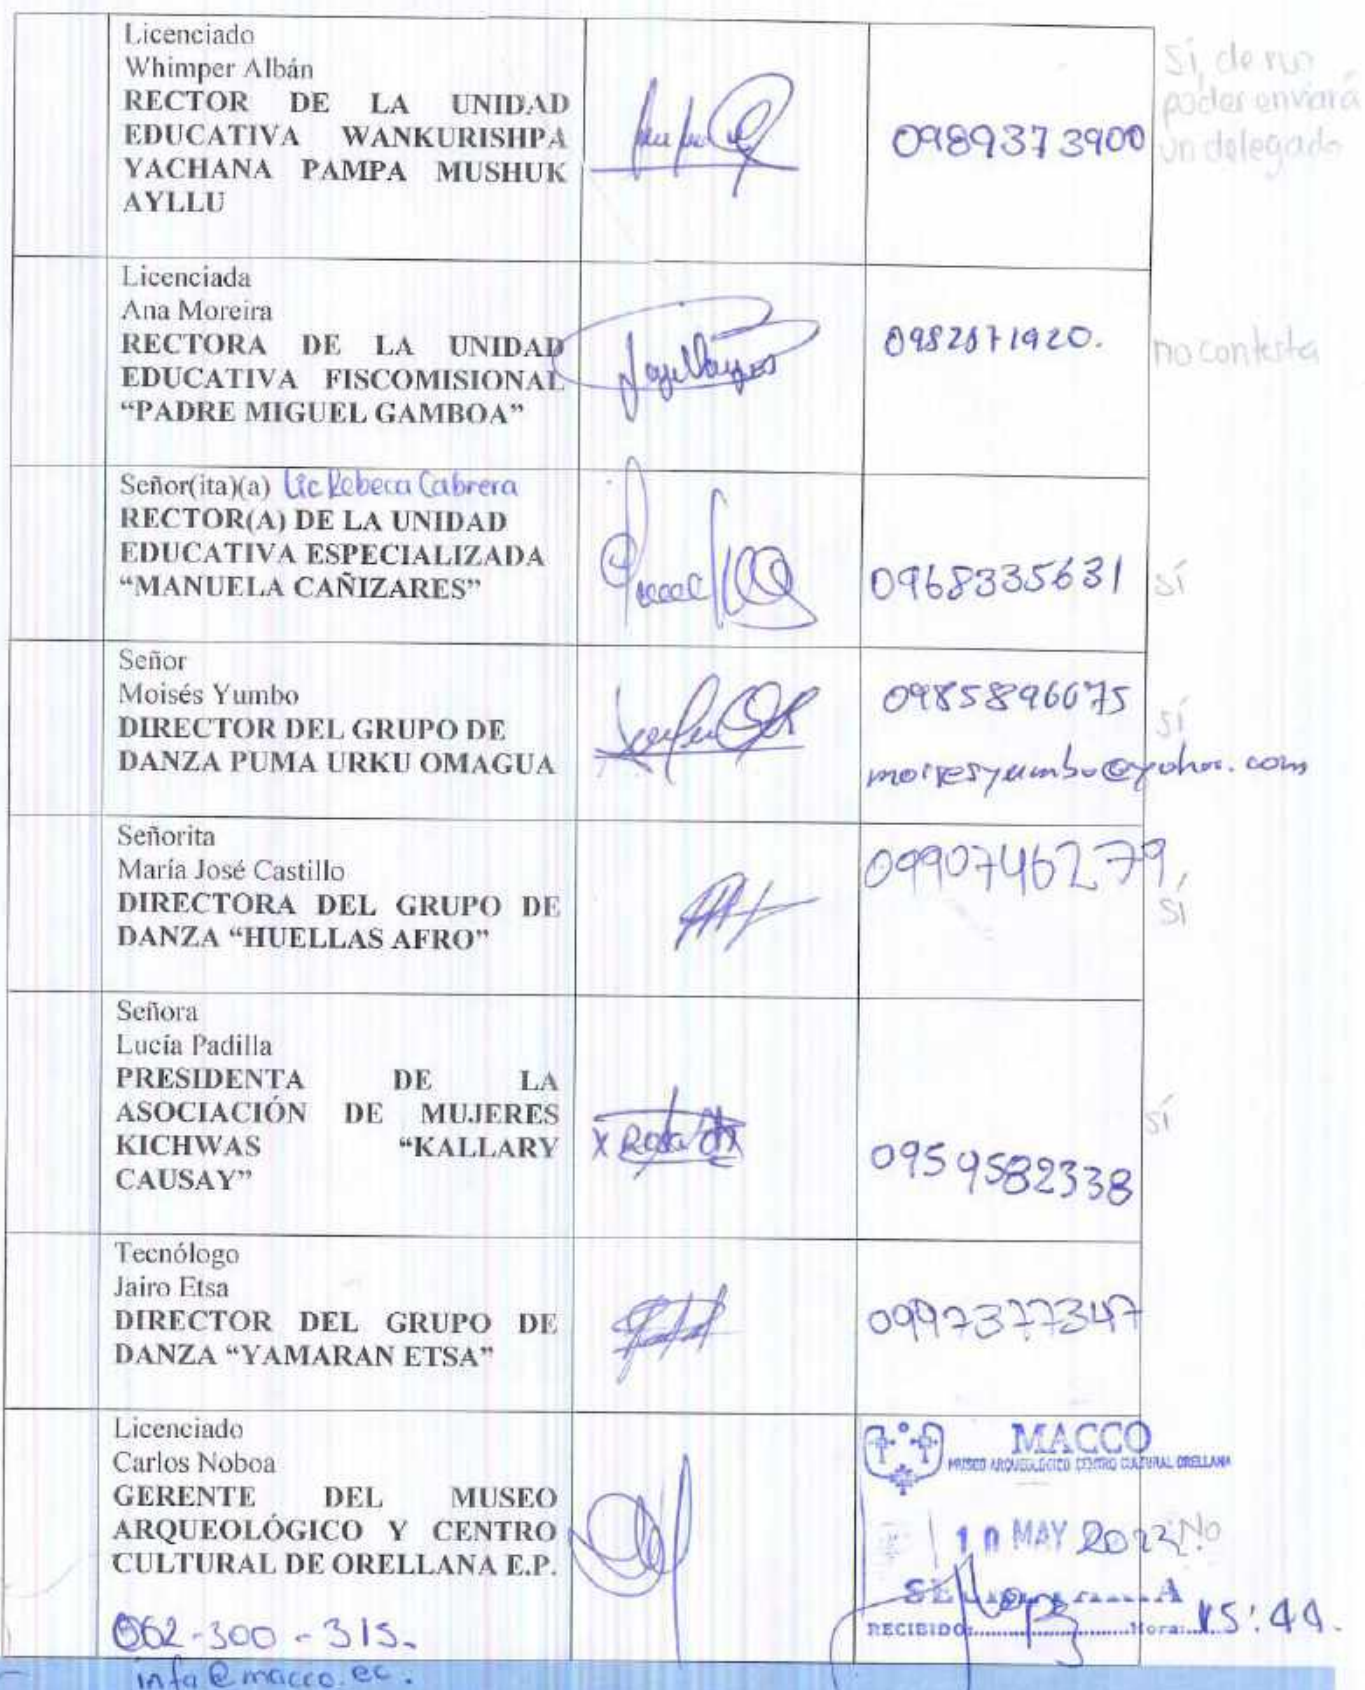 Licenciado
Whimper Albán
RECTOR DE LA UNIDAD
EDUCATIVA WANKURISHPA
YACHANA PAMPA MUSHUK
AYLLU
0989373900
Sí, de no
poder enviará
un delegado
Licenciada
Ana Moreira
RECTORA DE LA UNIDAD
EDUCATIVA FISCOMISIONAL
“PADRE MIGUEL GAMBOA”
0982871920.
no contesta
Señor(ita)(a) Lic Rebeca Cabrera
RECTOR(A) DE LA UNIDAD
EDUCATIVA ESPECIALIZADA
“MANUELA CAÑIZARES”
0968335631
sí
Señor
Moisés Yumbo
DIRECTOR DEL GRUPO DE
DANZA PUMA URKU OMAGUA
0985896075
sí
moisesyumbo@yahoo.com
Señorita
María José Castillo
DIRECTORA DEL GRUPO DE
DANZA “HUELLAS AFRO”
0990746279
sí
Señora
Lucía Padilla
PRESIDENTA DE LA
ASOCIACIÓN DE MUJERES
KICHWAS “KALLARY
CAUSAY”
0959582338
sí
Tecnólogo
Jairo Etsa
DIRECTOR DEL GRUPO DE
DANZA “YAMARAN ETSA”
0997377347
Licenciado
Carlos Noboa
GERENTE DEL MUSEO
ARQUEOLÓGICO Y CENTRO
CULTURAL DE ORELLANA E.P.
062-300-315.
info@macco.ec.
MACCO
MUSEO ARQUEOLÓGICO CENTRO CULTURAL ORELLANA
10 MAY 2022
No
RECIBIDO: Hora: 15:44.